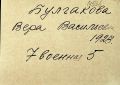 Булгакова
Вера Васильев
1923
7 военная 5